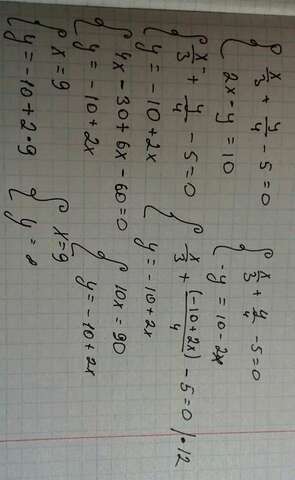 { x/3 + y/4 - 5 = 0
{ 2x - y = 10
{ x/3 + y/4 - 5 = 0
{ -y = 10 - 2x
{ x/3 + y/4 - 5 = 0
{ y = -10 + 2x
{ x/3 + (-10+2x)/4 - 5 = 0 | · 12
{ y = -10 + 2x
{ 4x - 30 + 6x - 60 = 0
{ y = -10 + 2x
{ 10x = 90
{ y = -10 + 2x
{ x = 9
{ y = -10 + 2·9
{ x = 9
{ y = 8